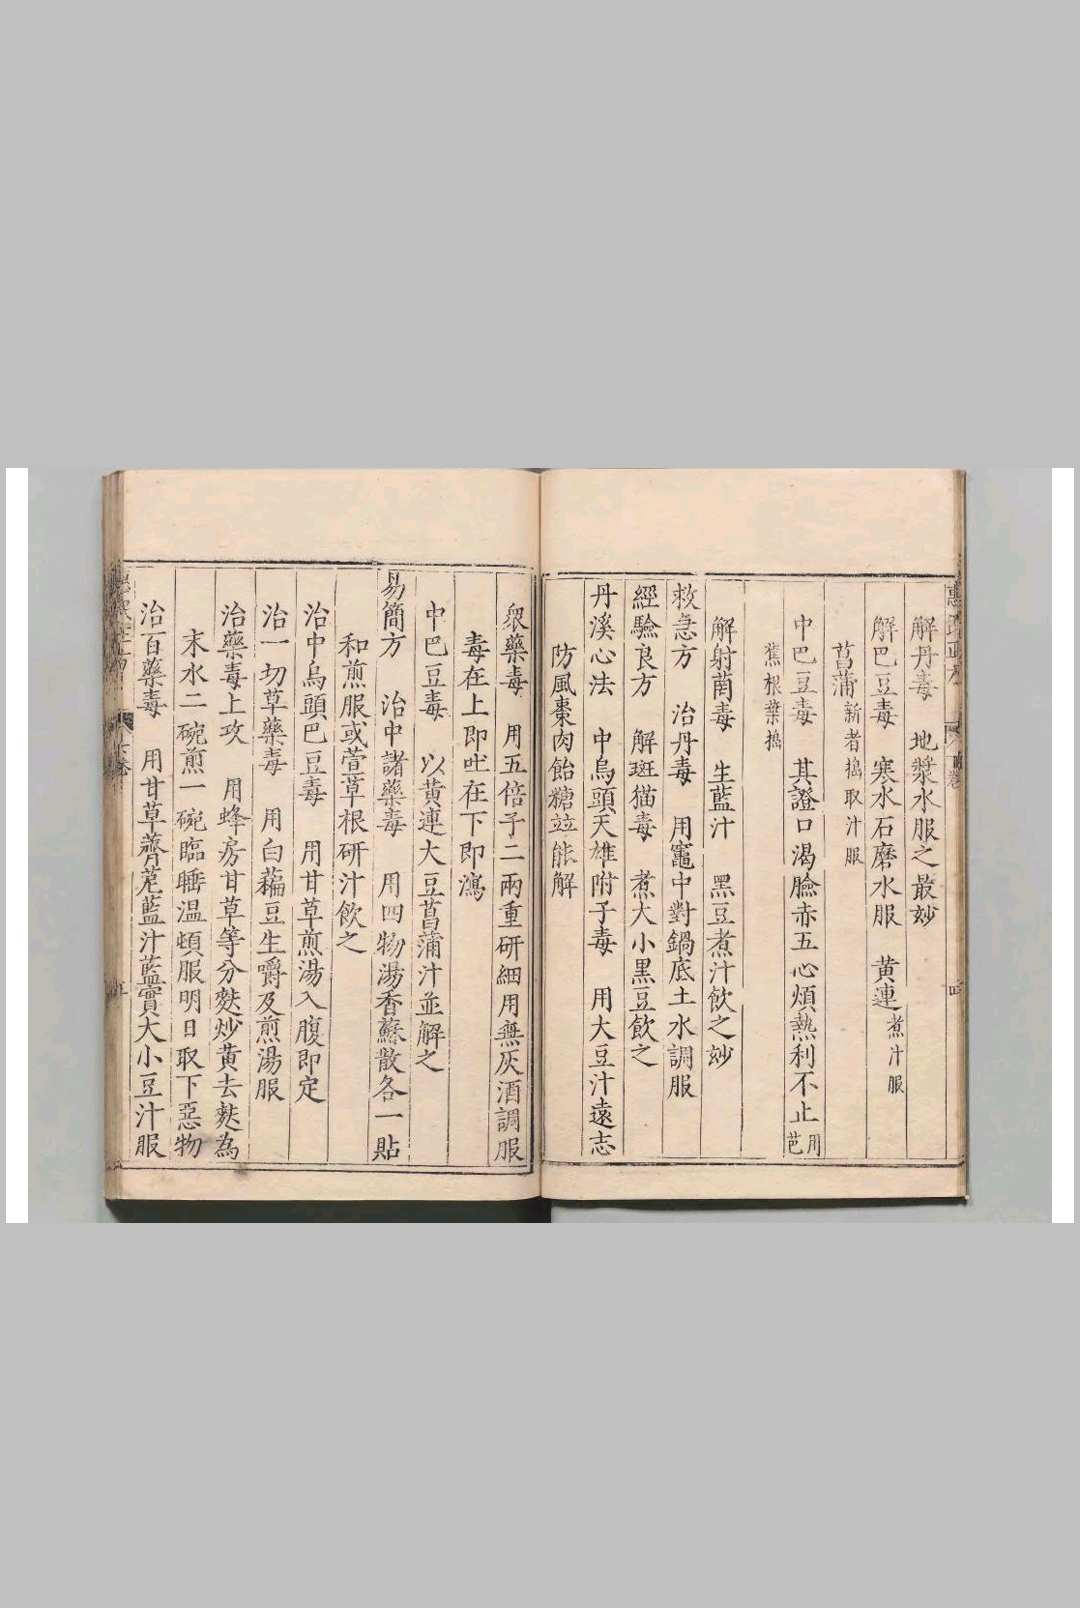 解丹毒　地漿水服之最妙
解巴豆毒　寒水石磨水服　黃連煮汁服
菖蒲新者搗取汁服
中巴豆毒　其證口渴臉赤五心煩熱利不止用芭
蕉根葉搗
解射菵毒　生藍汁　黑豆煮汁飲之妙
救急方　治丹毒　用竈中對鍋底土水調服
經驗良方　解斑猫毒　煮大小黑豆飲之
丹溪心法　中烏頭天雄附子毒　用大豆汁遠志
防風棗肉飴糖竝能解
衆藥毒　用五倍子二兩重研細用無灰酒調服
毒在上即吐在下即瀉
中巴豆毒　以黃連大豆菖蒲汁並解之
易簡方　治中諸藥毒　用四物湯香蘇散各一貼
和煎服或萱草根研汁飲之
治中烏頭巴豆毒　用甘草煎湯入腹即定
治一切草藥毒　用白藊豆生嚼及煎湯服
治藥毒上攻　用蜂房甘草等分麩炒黃去麩為
末水二碗煎一碗臨睡溫頓服明日取下惡物
治百藥毒　用甘草薺苨藍汁藍實大小豆汁服